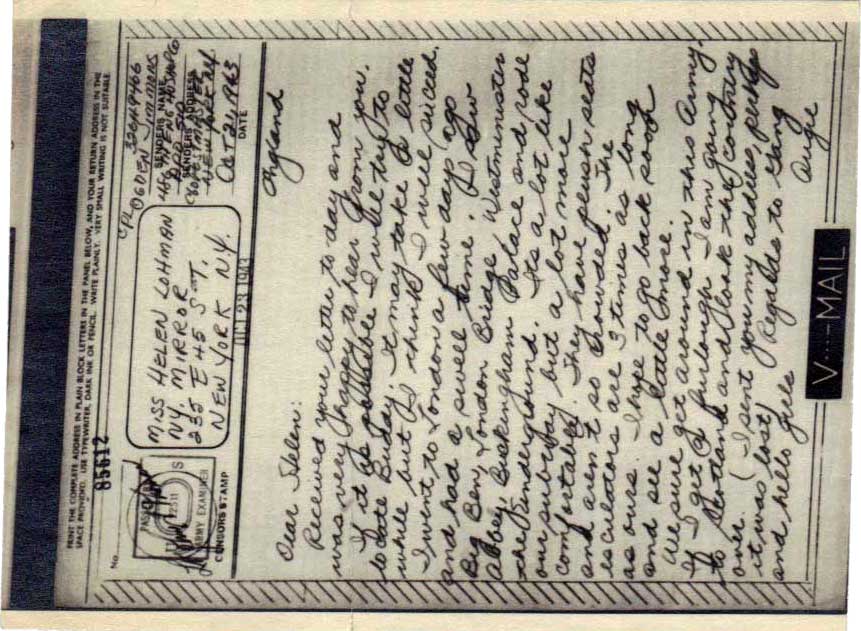 PRINT THE COMPLETE ADDRESS IN PLAIN BLOCK LETTERS IN THE PANEL BELOW, AND YOUR RETURN ADDRESS IN THE
SPACE PROVIDED. USE TYPEWRITER, DARK INK OR PENCIL. WRITE PLAINLY. VERY SMALL WRITING IS NOT SUITABLE.
85612
No.
PASSED BY
ARMY EXAMINER
CENSOR'S STAMP
MISS HELEN LOHMAN
NY. MIRROR
235 E 45 ST.
NEW YORK N.Y.
CPL OGDEN SIMMONS
SENDER'S NAME
SENDER'S ADDRESS
NEW YORK N.Y.
OCT 21, 1943
DATE
23 1943
England
Dear Helen:
Received your letter to day and
was very happy to hear from you.
If it is possible I will try to
locate Buddy. It may take a little
while but I think I will succed.
I went to London a few days ago
and had a swell time. I saw
Big Ben, London Bridge Westminister
Abbey Buckingham Palace and rode
the Underground. Its a lot like
our subway but a lot more
comfortable. They have plush seats
and aren't so crowded. The
esculators are 3 times as long
as ours. I hope to go back soon
and see a little more.
We sure get around in this Army.
If I get a furlough I am going
to Scotland and look the country
over. (I sent you my address, perhaps
it was lost) Regards to Gang
and hello girls
Augie
V···—MAIL